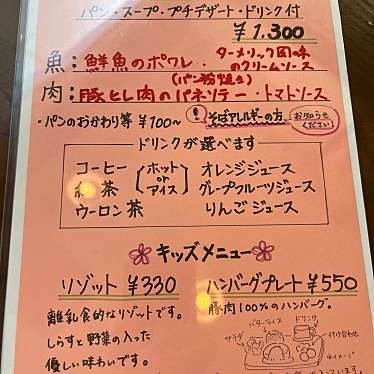 パン・スープ・プチデザート・ドリンク付
¥1.300
魚：鮮魚のポワレ・ターメリック風味のクリームソース
(パン粉焼き)
肉：豚ヒレ肉のパネソテー・トマトソース
・パンのおかわり等 ¥100〜
そばアレルギーの方、お知らせください
ドリンクが選べます
コーヒー
紅茶
ウーロン茶
ホットorアイス
オレンジジュース
グレープフルーツジュース
りんごジュース
キッズメニュー
リゾット ¥330
離乳食的なリゾットです。
しらすと野菜の入った
優しい味わいです。
ハンバーグプレート ¥550
豚肉100%のハンバーグ。
バターライス
ドリンク
サラダ
付け合わせ
イメージ